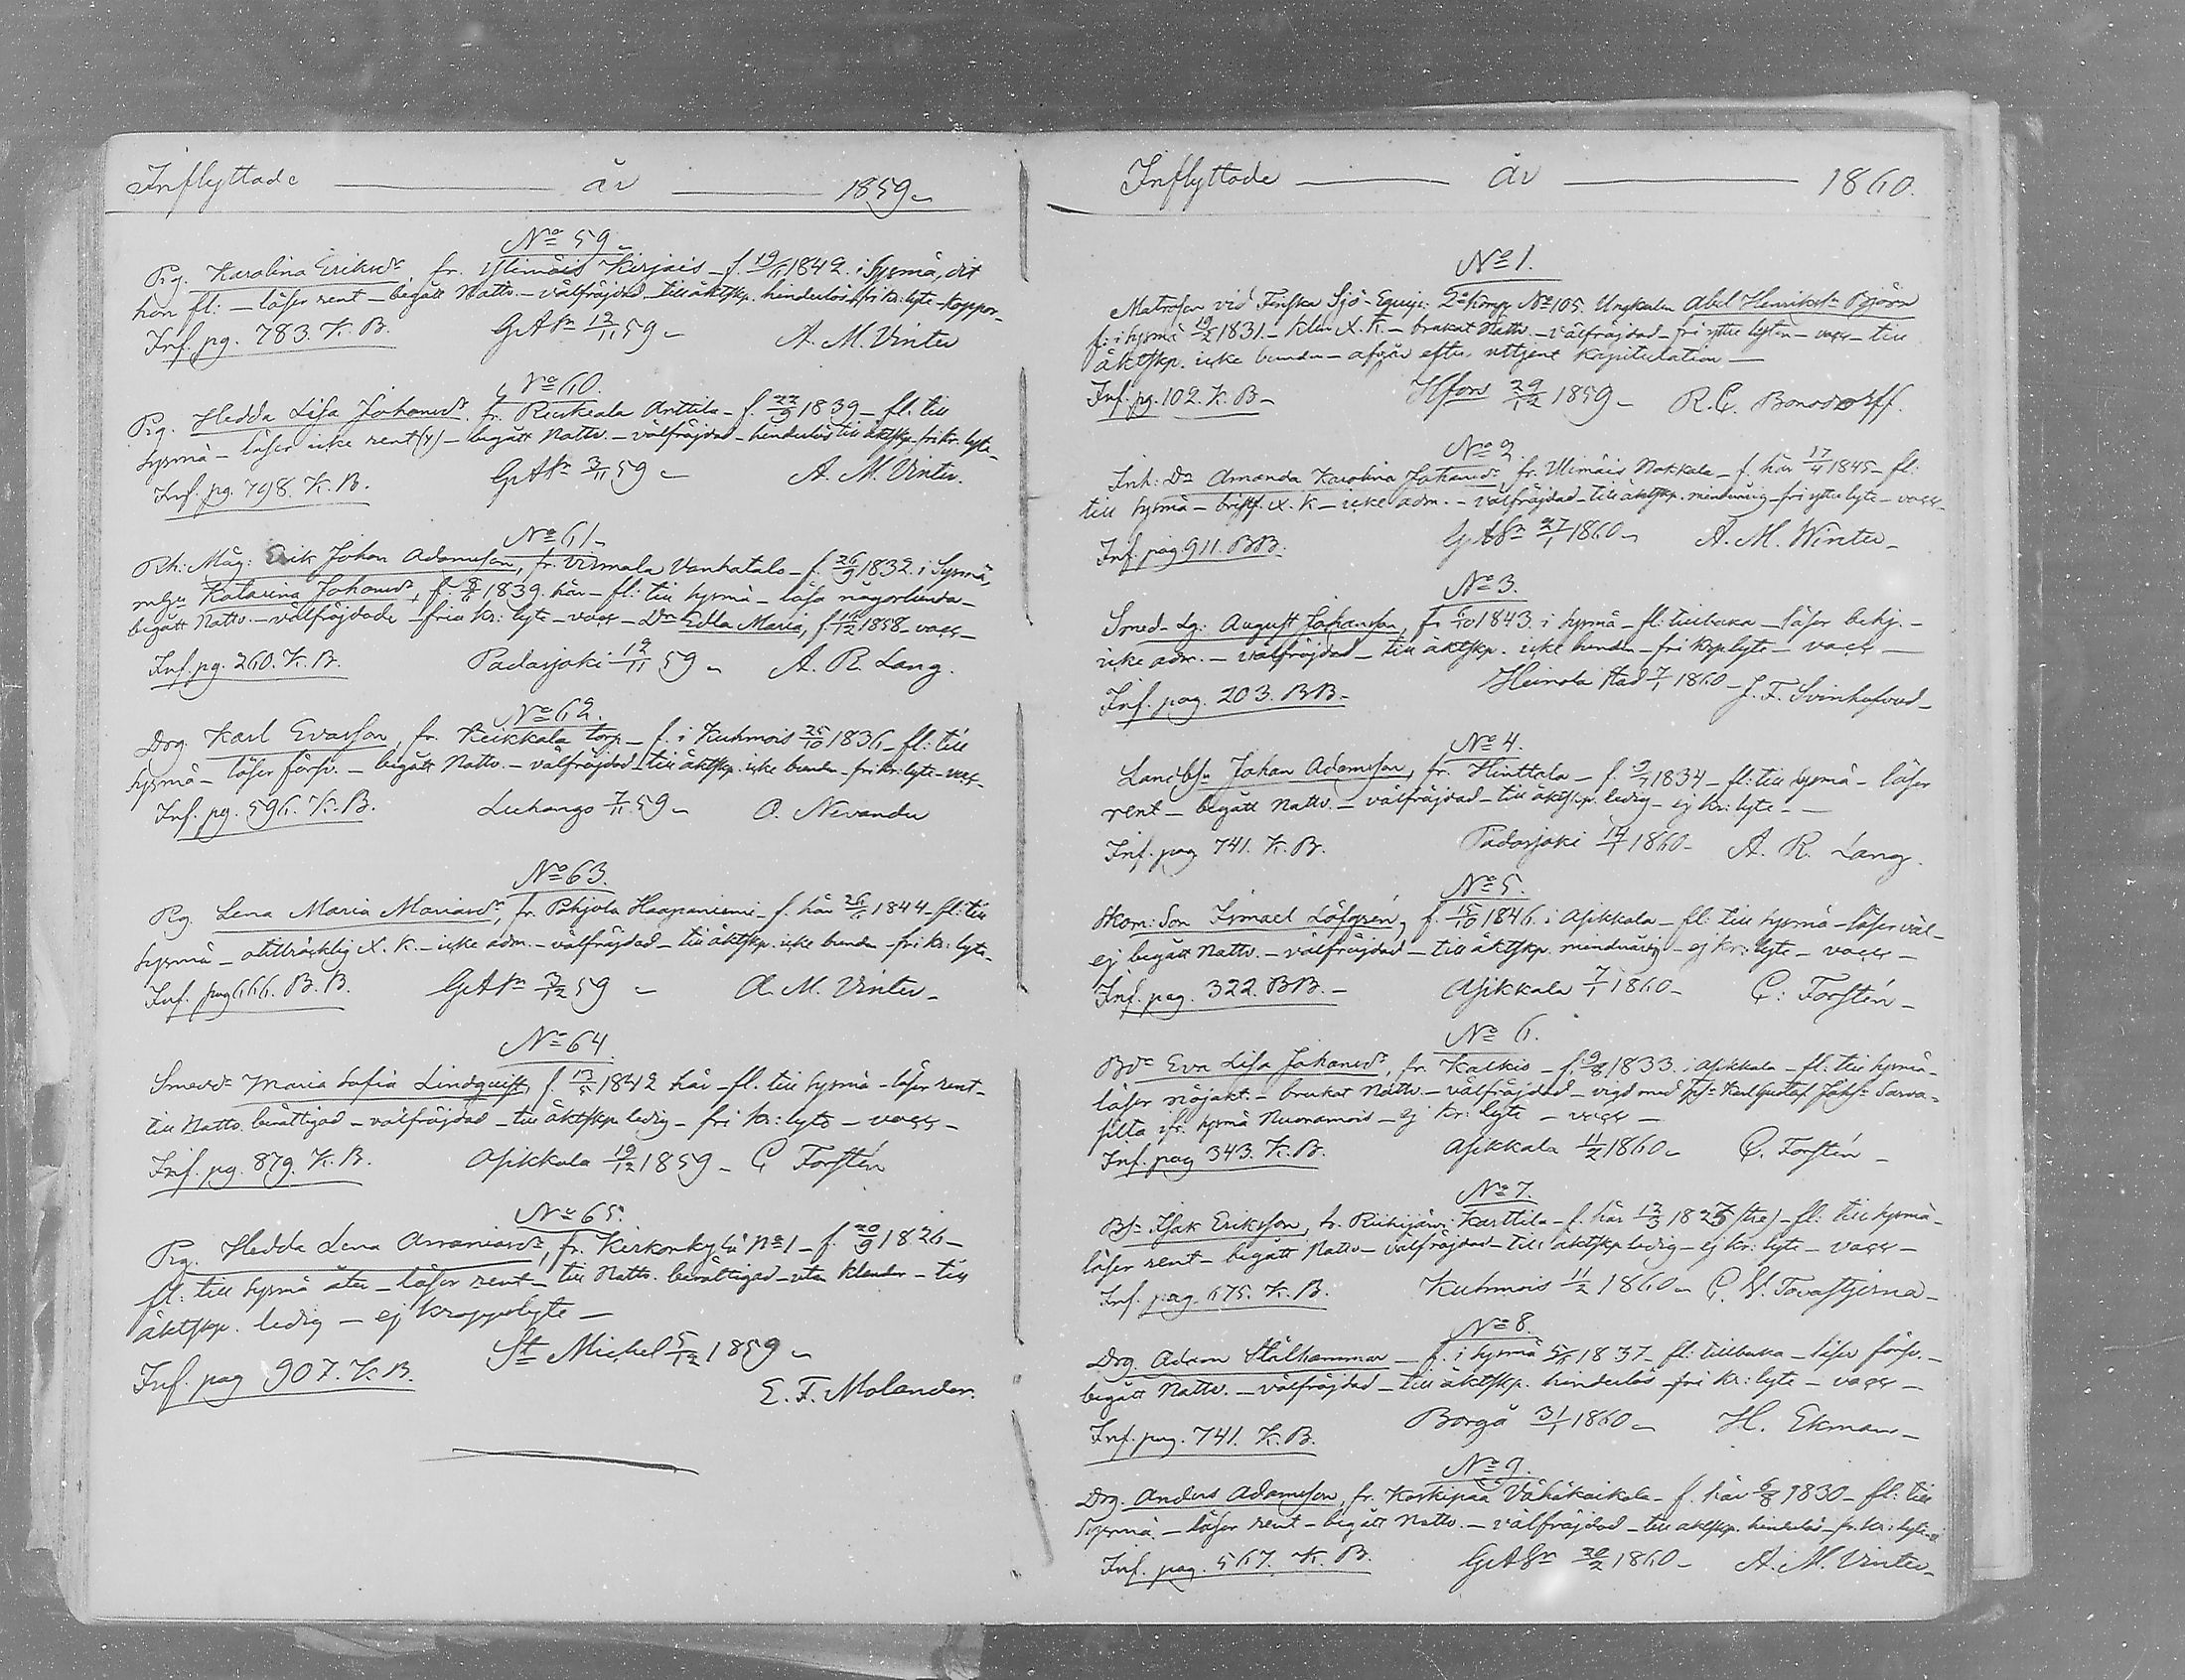 Inflyttade — år — 1859
No 59.
Pig. Karolina Eriksdr, fr. Ylimäis Kirjais – f. 19/11 1842 i Sysmä, dit
hon fl: – läser rent – begått Nattv. – välfräjdad – till äktskp. hinderlös, fri kr: lyte – koppor –
Inf. pg. 783. K. B. GAkn 12/11 59 – A. M. Vinter
No 60.
Pig. Hedda Lisa Johansdr. fr. Anttila – f. 22/9 1839 – fl. till
Sysmä – läser icke rent (x) – begått Nattv. – välfräjdad – hinderlös till äktskp – fri kr. lyte –
Inf. pg. 798. K. B. GAkn 3/11 59 – A. M. Vinter.
No 61 –
Rh: Måg: Erik Johan Adamsson, fr. Virmala Vanhatalo – f. 26/9 1832. i Sysmä,
m. hu Katarina Johansdr, f. 8/6 1839. här – fl: till Sysmä – läsa någorlunda –
begått Nattv. – välfräjdade – fria kr: lyte – vacc – Dr Edla Maria, f. 1858 – vacc –
Inf. pg. 260. K. B. Padasjoki 12/11 59 – A. R. Lang.
No 62.
Drg Karl Evasson, fr. Keikkala torp – f. i Kuhmois 25/10 1836 – fl: till
Sysmä – läser försv. – begått Nattv. – välfräjdad – till äktskp. icke bunden – fri kr: lyte – vacc –
Inf. pg. 596. K. B. Luhango 7/11 59 – O. Nevander
No 63.
Pig. Lena Maria Mariasdr, fr. Pohjola Haapaniemi – f. här 26/11 1844 – fl: till
Sysmä – otillräcklig X. K. – icke adm. – välfräjdad – till äktskp. icke bunden – fri kr: lyte –
Inf. pag 666. B. B. GAkn 3/12 59 – A. M. Vinter –
No 64.
Smedsdr Maria Sofia Lindquist, f. 13/5 1842 här – fl. till Sysmä – läser rent –
till Nattv. berättigad – välfräjdad – till äktskp ledig – fri kr: lyte – vacc –
Inf. pg. 879. K. B. Asikkala 19/12 1859 – C Forstén
No 65.
Pig. Hedda Lena Ananiasdr, fr. Kirkonkylä No 1 – f. 20/9 1826 –
fl: till Sysmä åter – läser rent – till Nattv. berättigad – utan klander – till
äktskp. ledig – ej kroppslyte –
St Michel 5/12 1859 –
Inf. pag 907. K. B. E. F. Molander.
Inflyttade — år — 1860.
No 1.
Matrosen vid Finska Sjö-Equip: 2a komp. No 105. Ungkarlen Abel Henrikss. Björn
f: i Sysmä 19/2 1831 – X. K. – brukat Nattv. – välfräjdad – fri yttre lyten – vacc – till
äktskp. icke bunden – afgår efter uttjent kapitulation –
Inf. pg. 102. K. B – Hfors 29/12 1859 – R. C. Bonsdorff.
No 2.
Inh: Dr Amanda Karolina Johansdr, fr. Ylimäis Nokkala – f. här 17/4 1845 – fl:
till Sysmä – X. K – icke adm. – välfräjdad – till äktskp. minderårig – fri yttre lyte – vacc –
Inf. pag 911. BB. 27/1 1860 – A. M. Winter –
No 3.
Smed. Lg: August Johansson, f. 6/10 1843. i Sysmä – fl: tillbaka – läser behj. –
icke adm. – välfräjdad – till äktskp. icke bunden – fri krpslyte – vacc –
Inf. pag. 203. BB – Heinola stad 7/1 1860 – J. F. Svinhufvud –
No 4.
Johan Adamsson, fr. Hinttala – f. 9/7 1834 – fl: till Sysmä – läser
rent – begått Nattv. – välfräjdad – till äktskp. ledig – ej kr: lyte –
Inf. pag 741. K. B. Padasjoki 14/1 1860 – A. R. Lang.
No 5.
Skom: Son Ismael Löfgrén, f. 15/10 1846. i Asikkala – fl: till Sysmä – läser väl –
ej begått Nattv. – välfräjdad – till äktskp. minderårig – ej kr: lyte – vacc –
Inf. pag. 322. BB. – Asikkala 7/1 1860 – C: Forstén –
No 6.
Bdr Eva Lisa Johansdr, fr. Kalkis – f. 9/8 1833. i Asikkala – fl: till Sysmä –
läser nöjakt. – brukat Nattv. – välfräjdad – vigd med Karl Gustaf Johss Sarva-
silta ifr. Sysmä Nuoramois – ej kr: lyte – vacc –
Inf. pag 343. K. B. Asikkala 11/2 1860 – C. Forstén –
No 7.
Bs. Isak Eriksson, fr. Karttila – f. här 12/3 1823 (tre) – fl: till Sysmä –
läser rent – begått Nattv – välfräjdad – till äktskp ledig – ej kr: lyte – vacc –
Inf. pag. 675. K. B. Kuhmois 11/2 1860 – C. W. Tavastjerna –
No 8.
Drg. Adam Stålhammar – f. i Sysmä 5/5 1837 – fl: tillbaka – läser försv. –
begått Nattv. – välfräjdad – till äktskp. hinderlös – fri kr: lyte – vacc –
Inf. pag. 741. K. B. Borgå 31/1 1860 – H. Ekman –
No 9.
Drg. Anders Adamsson, fr. Koskipää Vähäkaikola – f. här 6/8 1830 – fl: till
Sysmä – läser rent – begått Nattv. – välfräjdad – till äktskp. hinderlös – fr. kr: lyte –
Inf. pag. 567. K. B. 20/2 1860 – A. M. Vinter –